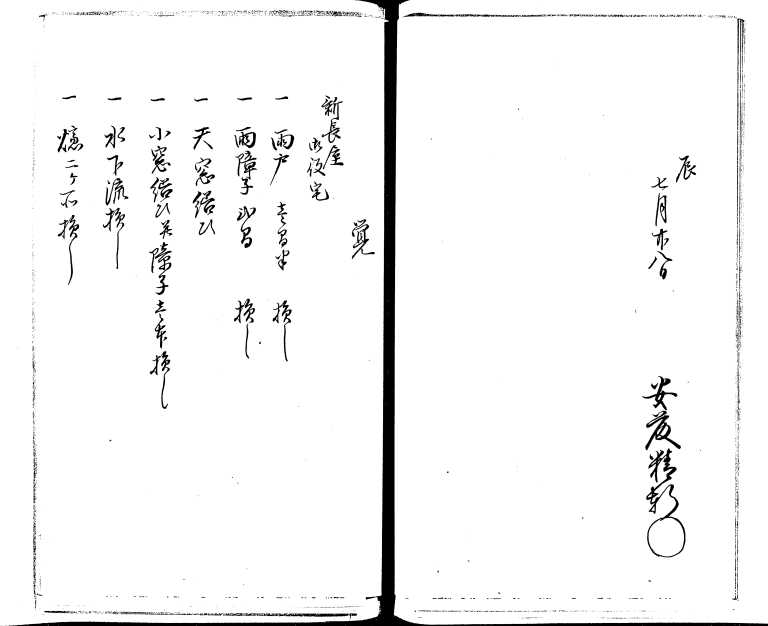 辰
七月廿八日
安度精軒
覚
新長屋
御役宅
一 雨戸 壱間半 損し
一 雨障子 弐間 損し
一 天窓繕ひ
一 小窓繕ひ并障子壱本損し
一 水下流損し
一 壇二ケ所損し